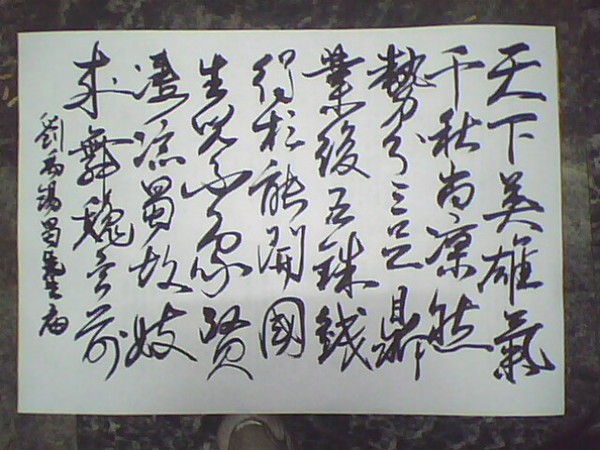 天下英雄氣
千秋尚凜然
勢分三足鼎
業復五銖錢
得相能開國
生兒不象賢
淒涼蜀故妓
來舞魏宮前
劉禹錫蜀先主廟